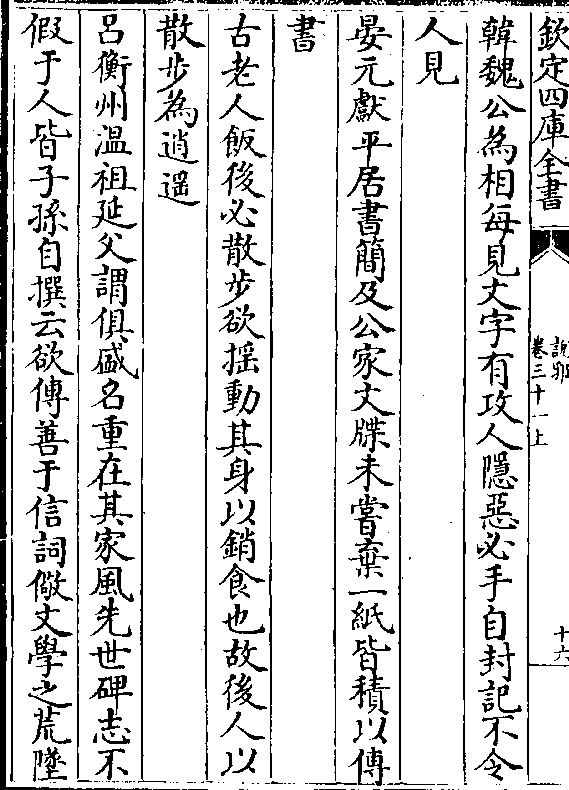 欽定四庫全書
說郛
卷三十一上
十六
韓魏公為相每見文字有攻人隱惡必手自封記不令
人見
晏元獻平居書簡及公家文牒未嘗棄一紙皆積以傳
書
古老人飯後必散步欲揺動其身以銷食也故後人以
散步為逍遥
吕衡州溫祖延父謂俱盛名重在其家風先世碑志不
假于人皆子孫自撰云欲傳善于信詞儆文學之荒墜